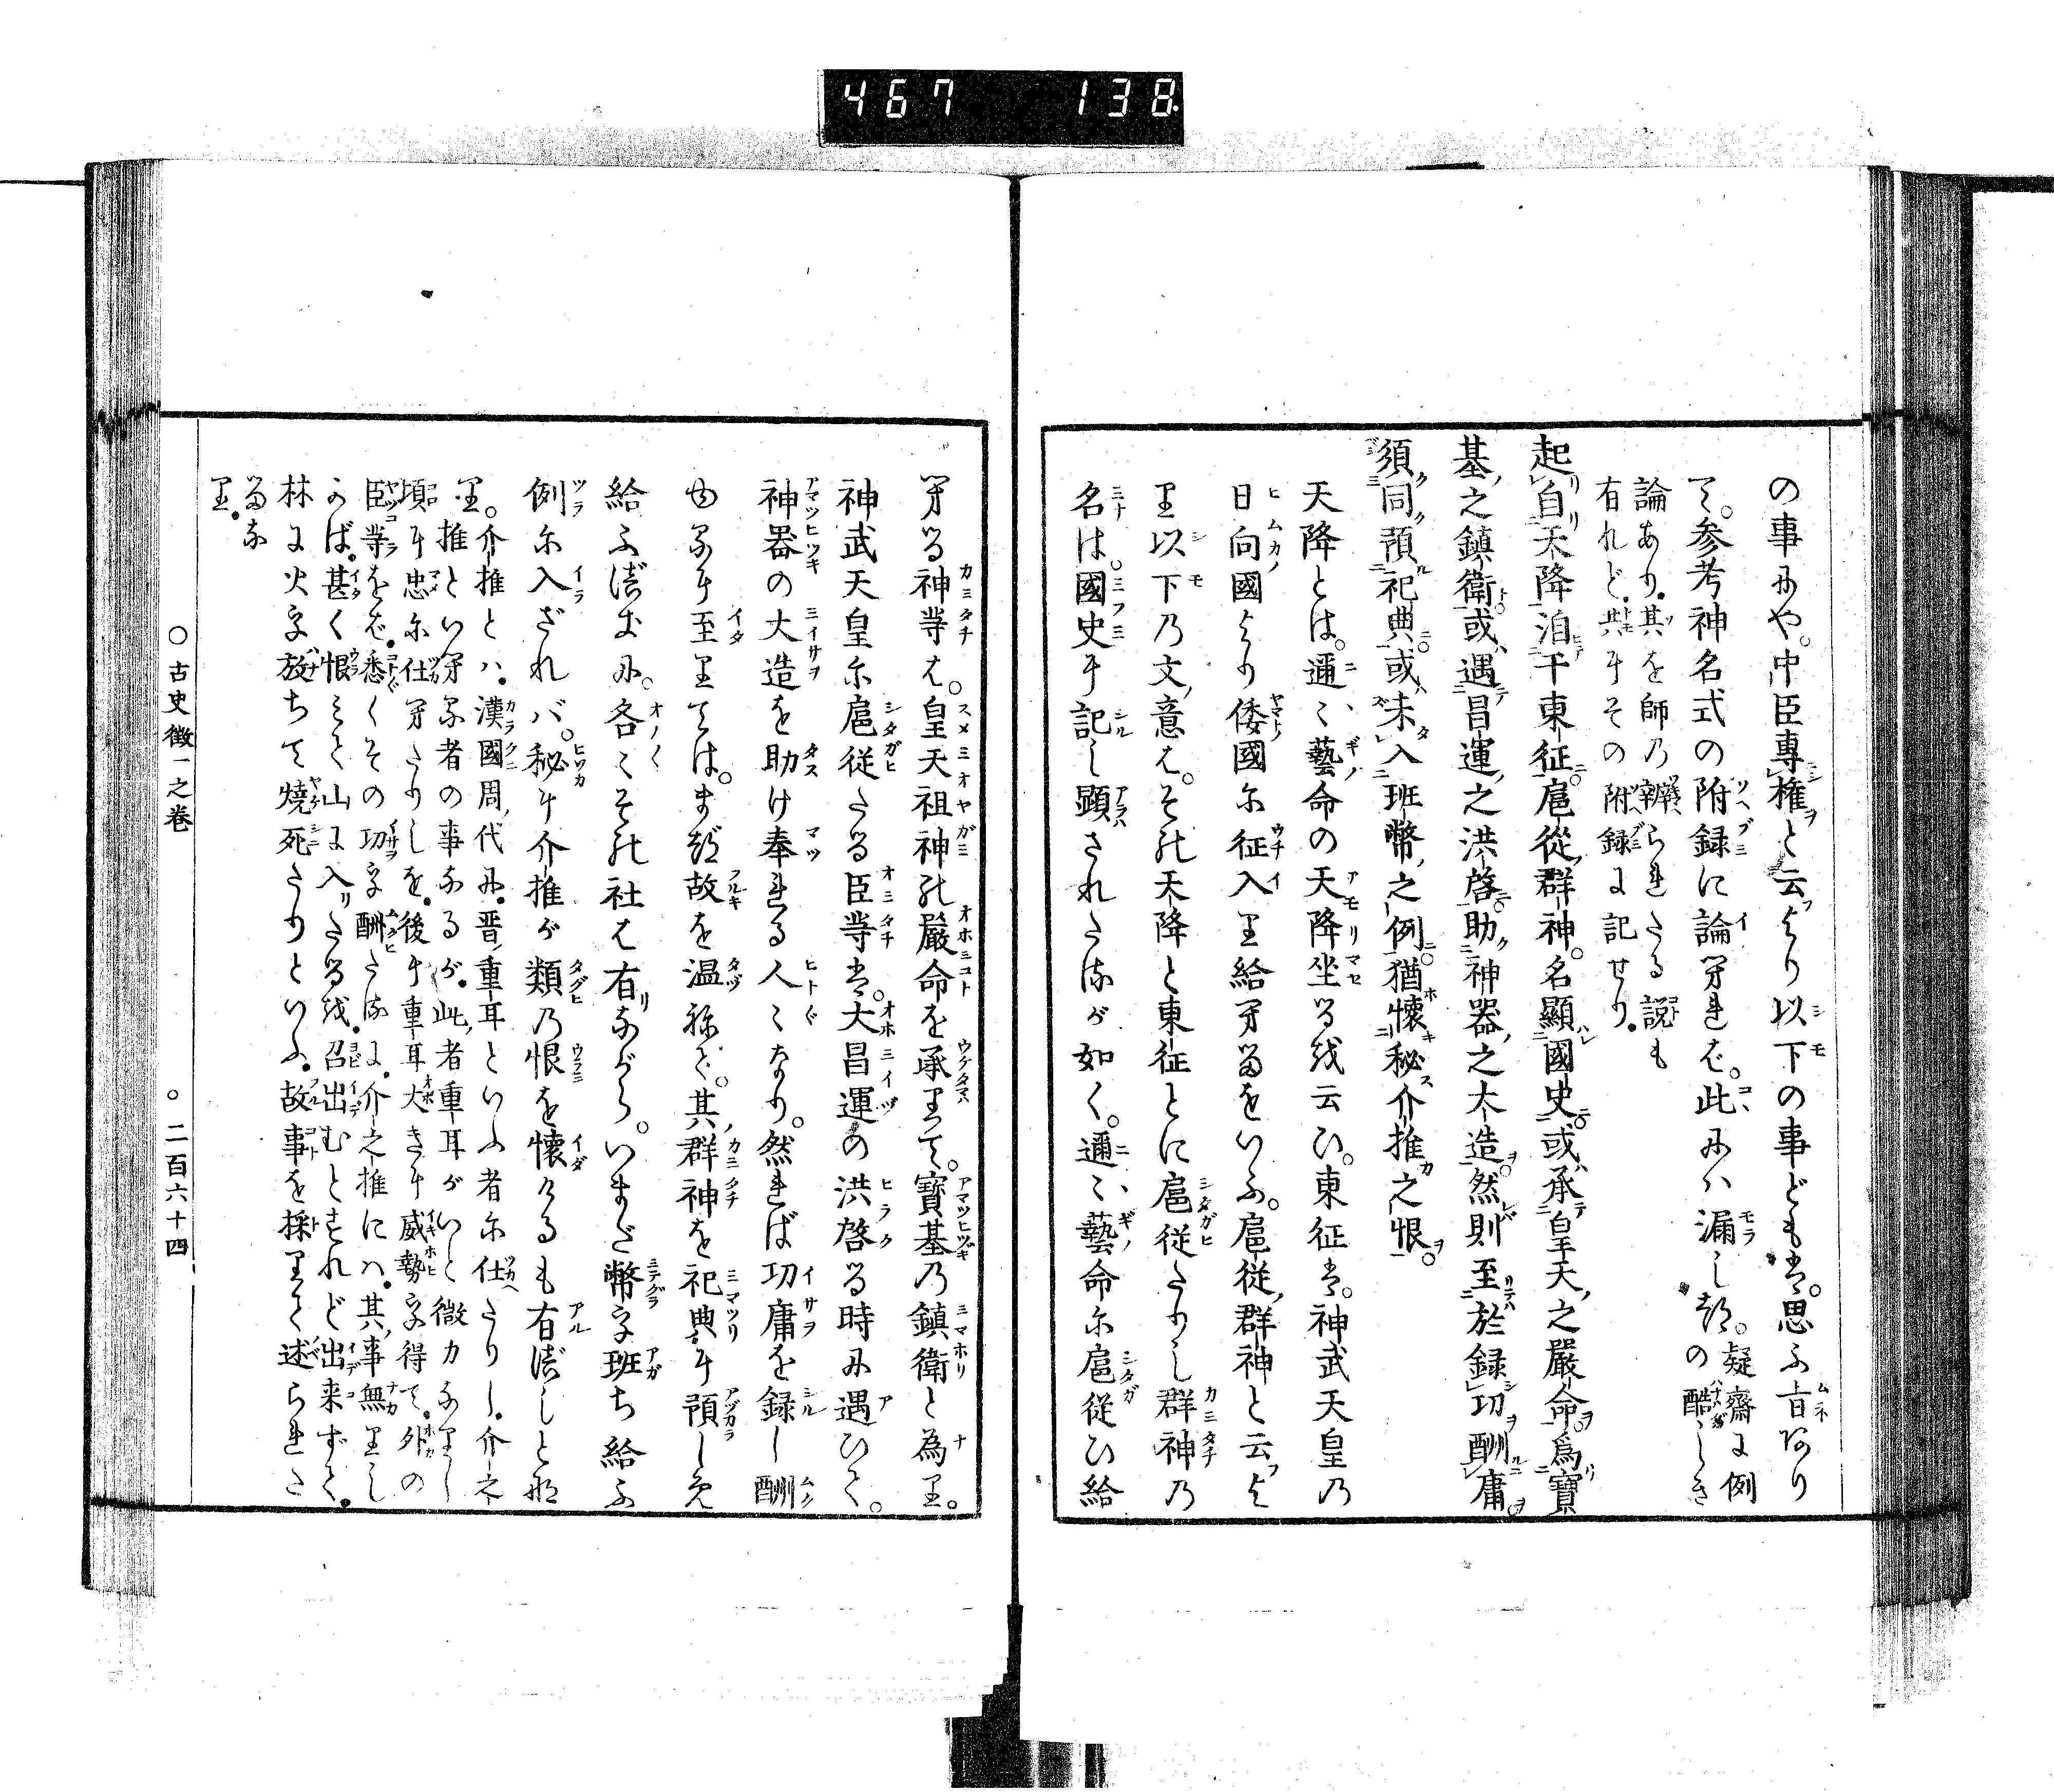 467 138
の事にや。中臣專權と云より以下の事どもは。思ふ旨あり
て。参考神名式の附録に論へれば。此には漏しつ。疑齋に例の酷しき
論あり。其を師の辨へられたる説も
有れど。共にその附録に記せり。
起自天降洎于東征扈從群神。名顯國史或承皇天之嚴命爲寶
基之鎭衛或遇昌運之洪啓助神器之大造然則至於録功酬庸
須同預祀典或未入班幣之例猶懷秘介推之恨。
天降とは。邇々藝命の天降坐るを云ひ。東征は。神武天皇の
日向國より倭國に征入り給へるをいふ。扈從群神と云よ
り以下の文意は。その天降と東征とに扈従たりし群神の
名は。國史に記し顯されたるが如く。邇々藝命に扈従ひ給
へる神等は。皇天祖神の嚴命を承りて。寶基の鎮衛と為り。
神武天皇に扈従たる臣等は。大昌運の洪啓る時に遇ひて。
神器の大造を助け奉れる人々なり。然れば功庸を録し酬
ゆるに至りては。まづ故を温ねて。其群神を祀典に預しめ
給ふべきに。各々その社は有ながら。いまだ幣を班ち給ふ
例に入ざれバ。秘に介推が類の恨を懐けるも有べしとな
り。介推とハ。漢國周代に。晋重耳といふ者に仕たりし介之
推といへる者の事なるが。此者重耳がいと微力なりし
頃に忠に仕へたりしを。後に重耳大きに威勢を得て。外の
臣等をば。悉くその功を酬たるに。介之推にハ。其事無りし
かば。甚く恨みて山に入りたるを。召出むとすれど出来ずて。
林に火を放ちて燒死たりといふ。故事を採りて述られた
るなり。
○古史徴一之巻 ○二百六十四